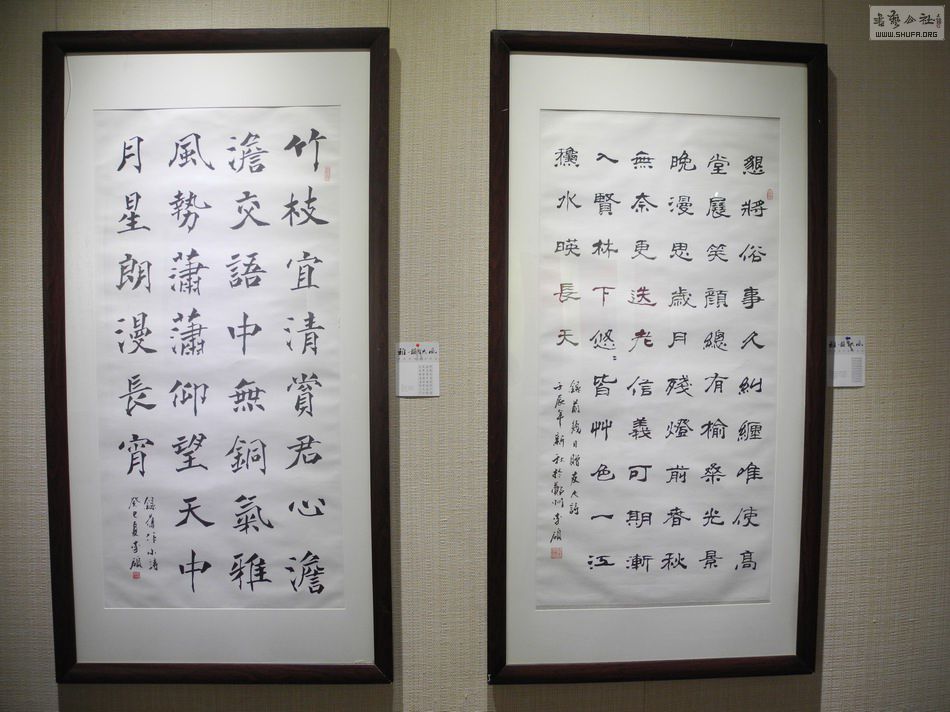 竹枝宜清賞君心澹
澹交語中無銅氣雅
風勢瀟瀟仰望天中
月星朗漫長宵
錄舊作小詩
癸巳夏李碩
懇將俗事久糾纏唯使高
堂展笑顏總有榆桑光景
晚漫思歲月殘燈前春秋
無奈更迭老信義可期漸
入賢林下悠悠皆艸色一江
龝水暎長天
錄前幾日贈友人詩
壬辰年新秋於鄭州李碩
書藝公社
WWW.SHUFA.ORG